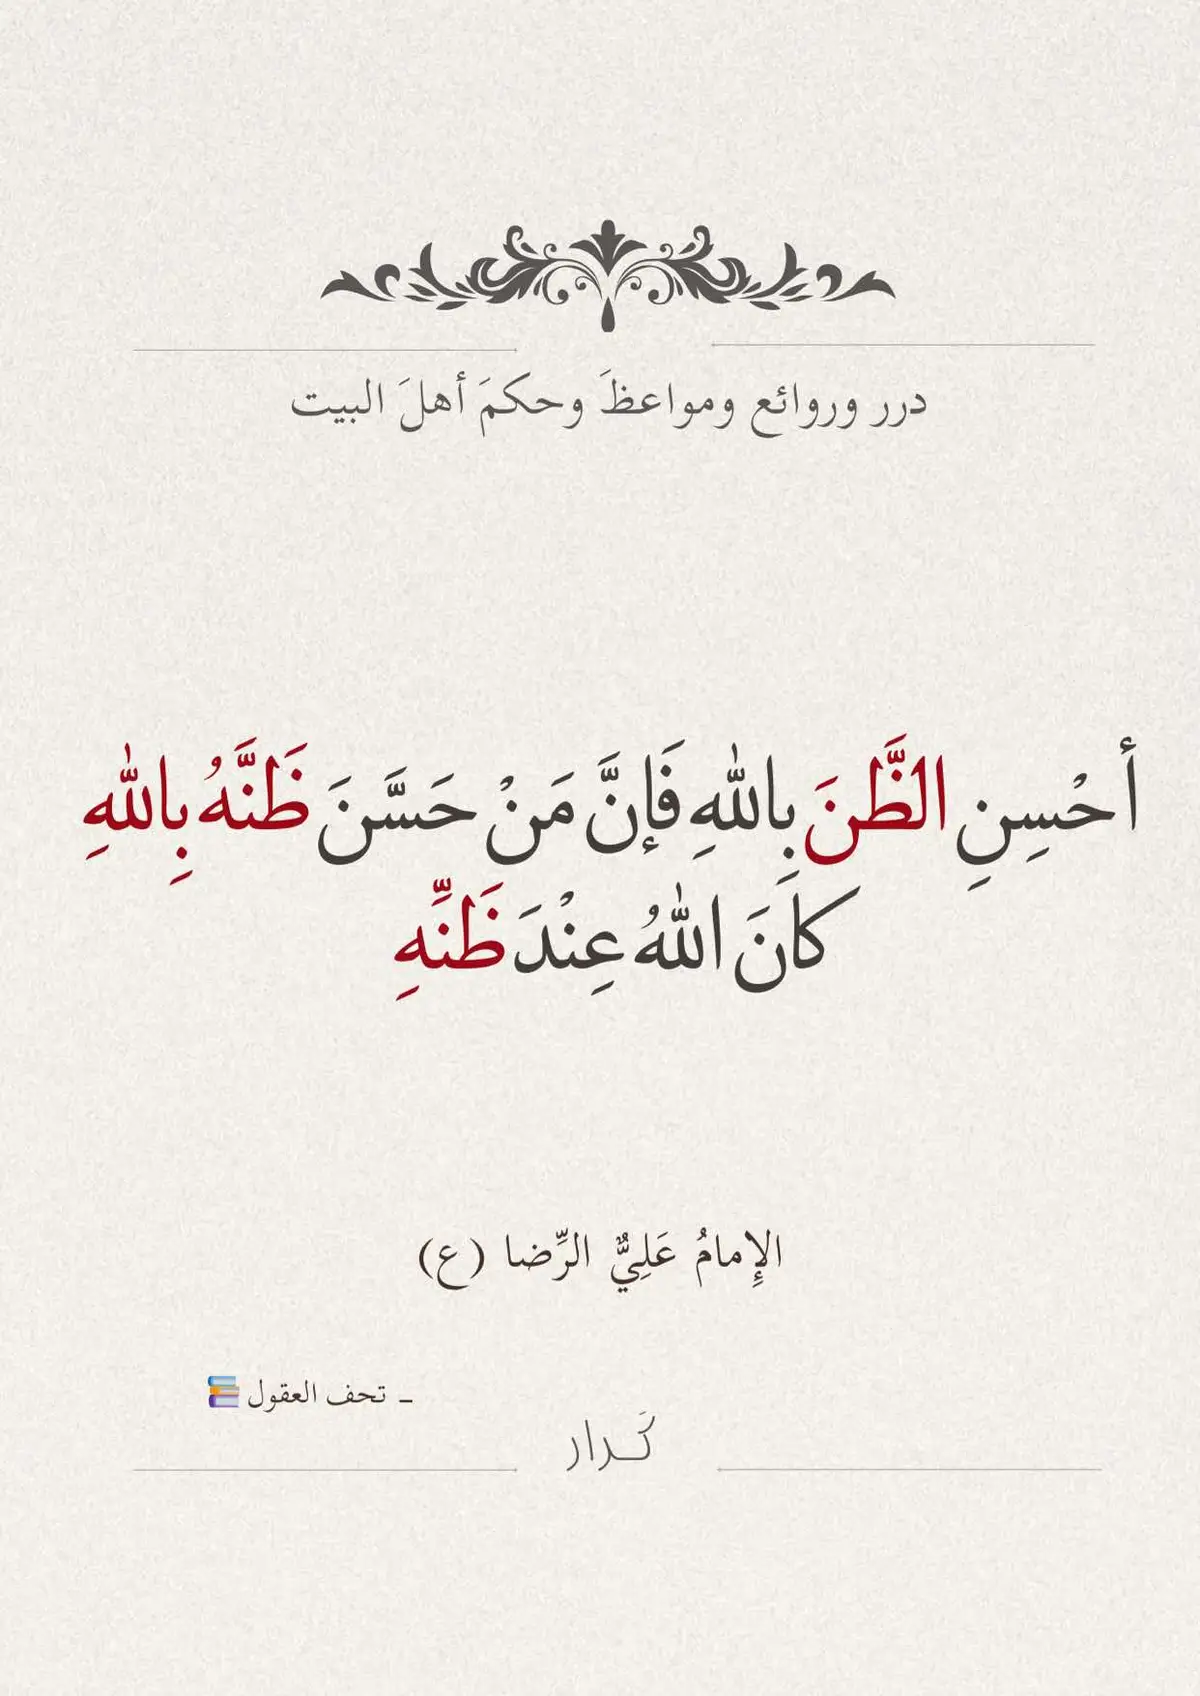 درر وروائع ومواعظَ وحكمَ أهلَ البيت
أحْسِنِ الظَّنَ بِاللهِ فَإنَّ مَنْ حَسَّنَ ظَنَّهُ بِاللهِ
كَانَ اللهُ عِنْدَ ظَنِّهِ
الإِمامُ عَلِيٌّ الرِّضا (ع)
ـ تحف العقول 📚
كَـرار